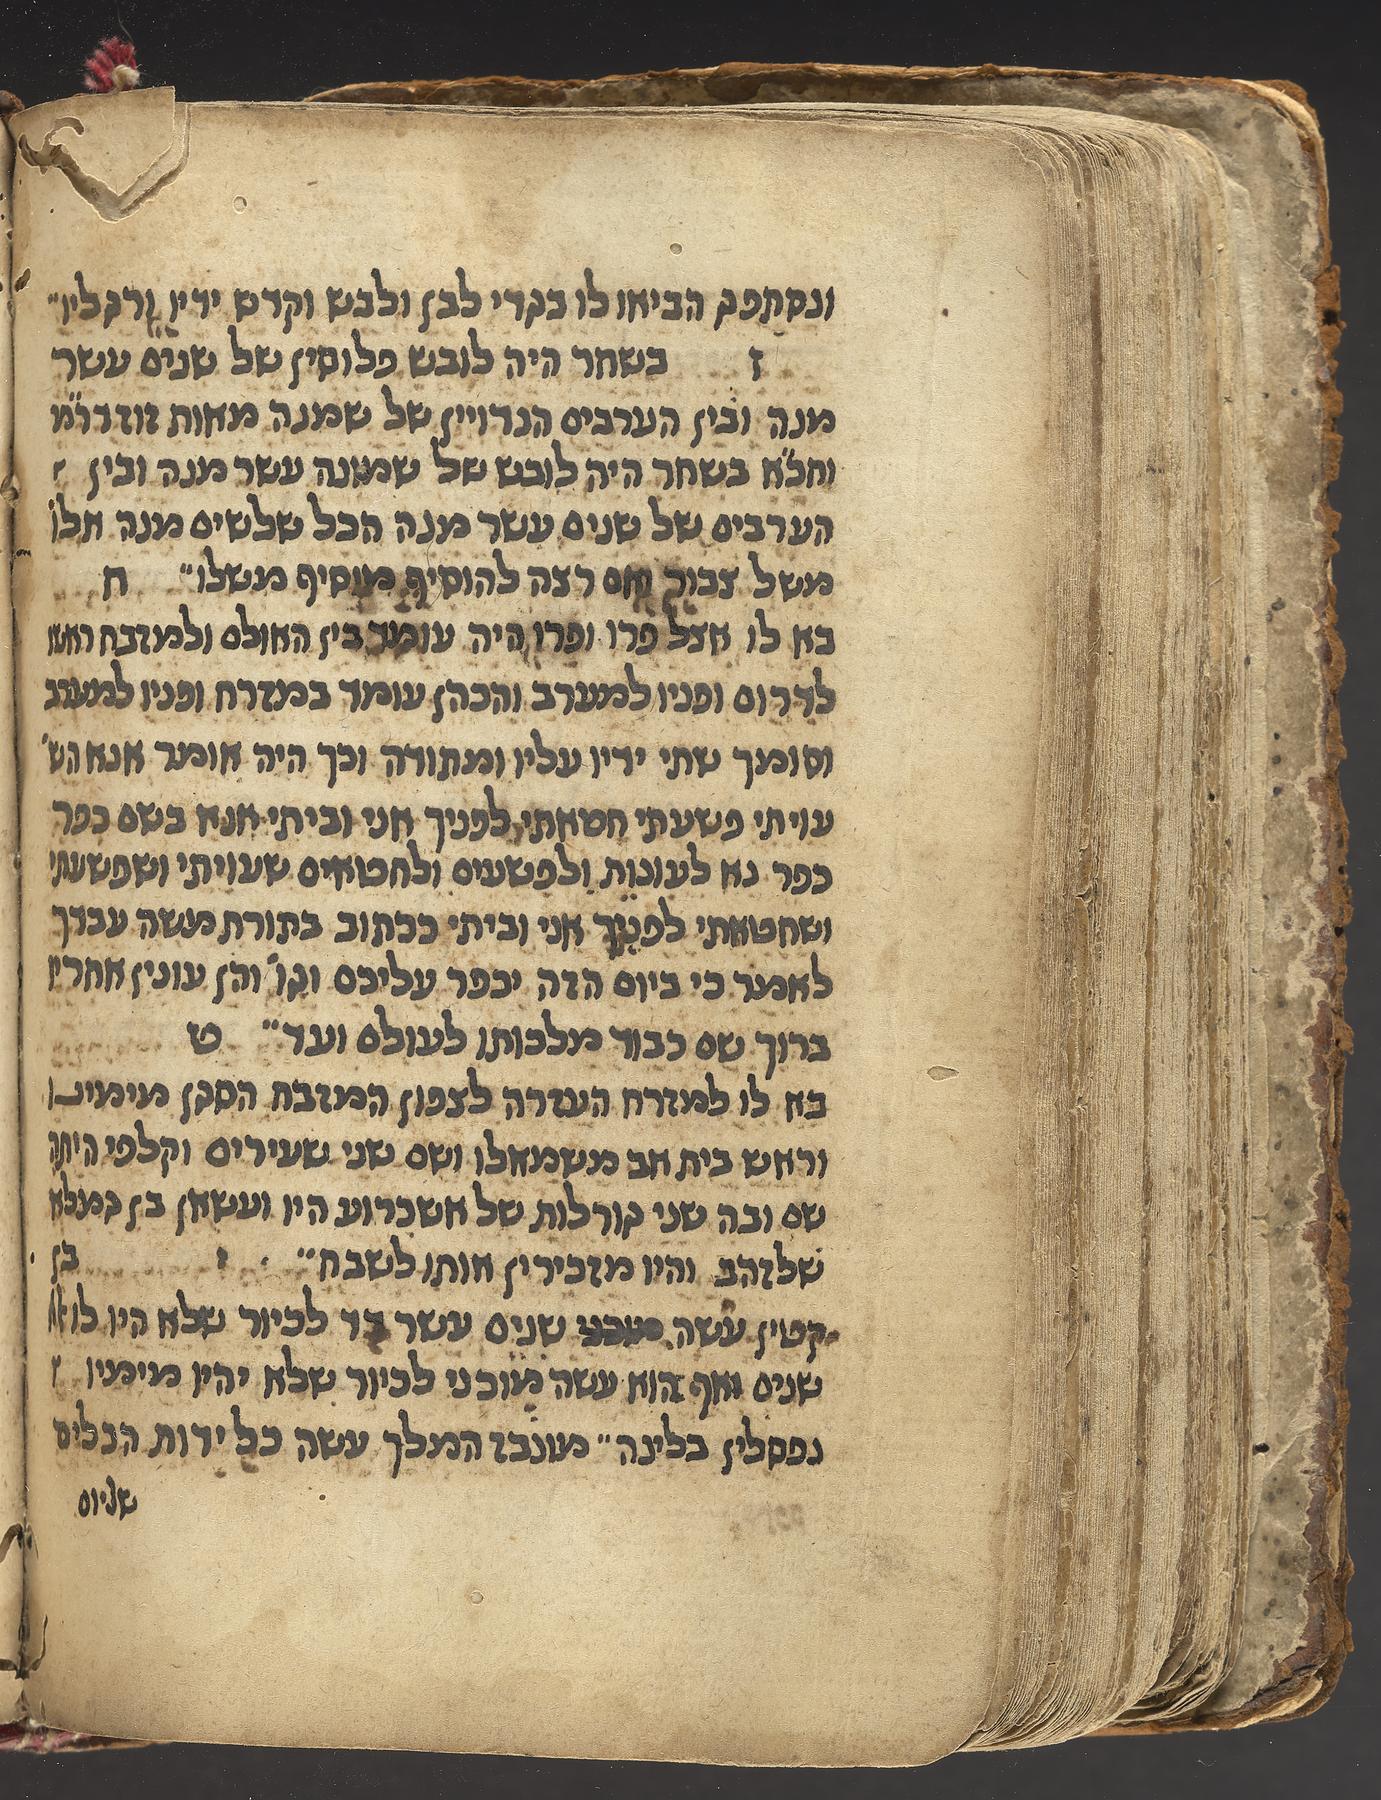 ונסתפג הביאו לו בגדי לבן ולבש וקדש ידיו ורגליו״
ז בשחר היה לובש פלוסין של שנים עשר
מנה ובין הערבים הנדויין של שמנה מאות זוז דר״מ
וחכ״א בשחר היה לובש של שמונה עשר מנה ובין
הערבים של שנים עשר מנה הכל שלשים מנה אלו
משל צבור ואם רצה להוסיף מוסיף משלו״ ח
בא לו אצל פרו ופרו היה עומד בין האולם ולמזבח ראשו
לדרום ופניו למערב והכהן עומד במזרח ופניו למערב
וסומך שתי ידיו עליו ומתודה וכך היה אומר אנא הש׳
עויתי פשעתי חטאתי לפניך אני וביתי אנא בשם כפר
כפר נא לעונות ולפשעים ולחטאים שעויתי ושפשעתי
ושחטאתי לפניך אני וביתי ככתוב בתורת משה עבדך
לאמר כי ביום הזה יכפר עליכם וגו׳ והן עונין אחריו
ברוך שם כבוד מלכותו לעולם ועד״ ט
בא לו למזרח העזרה לצפון המזבח הסגן מימינו
וראש בית אב משמאלו ושם שני שעירים וקלפי היתה
שם ובה שני גורלות של אשכרוע היו ועשאן בן גמלא
שלזהב והיו מזכירין אותו לשבח״ בן
קטין עשה שנים עשר דד לכיור שלא היו לו אלא
שנים ואף הוא עשה מוכני לכיור שלא יהיו מימיו
נפסלין בלינה״ מונבז המלך עשה כל ידות הכלים
שליום